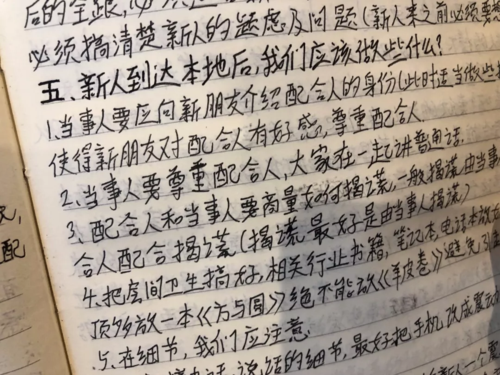 后的全跟,必须
必须搞清楚新人的疑虑及问题(新人来之前必须要
五、新人到达本地后,我们应该做些什么?
1.当事人要应向新朋友介绍配合人的身份(此时适当做些
使得新朋友对配合人有好感,尊重配合人.
2.当事人要尊重配合人,大家在一起讲普通话.
3.配合人和当事人要商量如何揭谎,一般揭谎由当事
合人配合揭谎(揭谎最好是由当事人揭谎)
4.把房间卫生搞好,相关行业书籍,笔记本,电话本放
顶多放一本《方与圆》绝不能放《羊皮卷》避免引
5.在细节,我们应注意
的细节,最好把手机改成震动
配